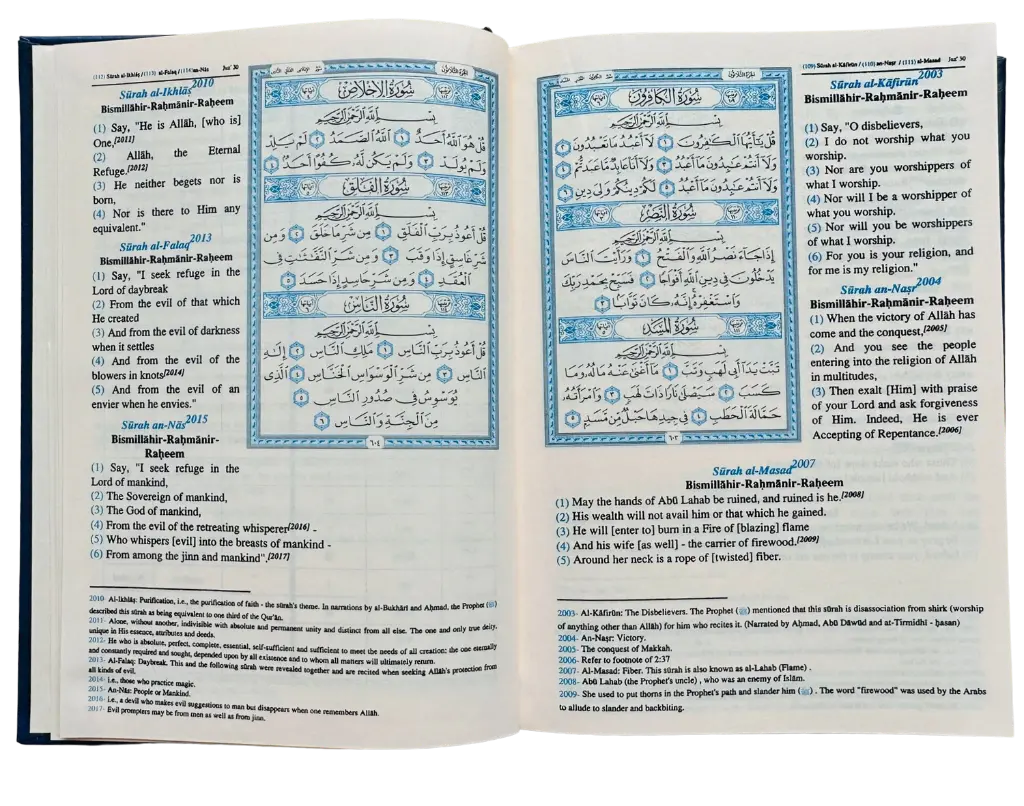 (109) Sūrah al-Kāfirūn / (110) an-Naṣr / (111) al-Masad Juz' 30
سُورَةُ الكَافِرُونَ
بِسْمِ اللَّهِ الرَّحْمَٰنِ الرَّحِيمِ
قُلْ يَٰٓأَيُّهَا ٱلْكَٰفِرُونَ ١ لَآ أَعْبُدُ مَا تَعْبُدُونَ ٢
وَلَآ أَنتُمْ عَٰبِدُونَ مَآ أَعْبُدُ ٣ وَلَآ أَنَا۠ عَابِدٌ مَّا عَبَدتُّمْ ٤
وَلَآ أَنتُمْ عَٰبِدُونَ مَآ أَعْبُدُ ٥ لَكُمْ دِينُكُمْ وَلِىَ دِينِ ٦
سُورَةُ النَّصْرِ
بِسْمِ اللَّهِ الرَّحْمَٰنِ الرَّحِيمِ
إِذَا جَآءَ نَصْرُ ٱللَّهِ وَٱلْفَتْحُ ١ وَرَأَيْتَ ٱلنَّاسَ
يَدْخُلُونَ فِى دِينِ ٱللَّهِ أَفْوَاجًا ٢ فَسَبِّحْ بِحَمْدِ رَبِّكَ
وَٱسْتَغْفِرْهُ إِنَّهُۥ كَانَ تَوَّابًۢا ٣
سُورَةُ المَسَدِ
بِسْمِ اللَّهِ الرَّحْمَٰنِ الرَّحِيمِ
تَبَّتْ يَدَآ أَبِى لَهَبٍ وَتَبَّ ١ مَآ أَغْنَىٰ عَنْهُ مَالُهُۥ وَمَا
كَسَبَ ٢ سَيَصْلَىٰ نَارًا ذَاتَ لَهَبٍ ٣ وَٱمْرَأَتُهُۥ
حَمَّالَةَ ٱلْحَطَبِ ٤ فِى جِيدِهَا حَبْلٌ مِّن مَّسَدٍۭ ٥
٦٠٣
Sūrah al-Kāfirūn2003
Bismillāhir-Raḥmānir-Raḥeem
(1) Say, "O disbelievers,
(2) I do not worship what you
worship.
(3) Nor are you worshippers of
what I worship.
(4) Nor will I be a worshipper of
what you worship.
(5) Nor will you be worshippers
of what I worship.
(6) For you is your religion, and
for me is my religion."
Sūrah an-Naṣr2004
Bismillāhir-Raḥmānir-Raḥeem
(1) When the victory of Allāh has
come and the conquest,[2005]
(2) And you see the people
entering into the religion of Allāh
in multitudes,
(3) Then exalt [Him] with praise
of your Lord and ask forgiveness
of Him. Indeed, He is ever
Accepting of Repentance.[2006]
Sūrah al-Masad2007
Bismillāhir-Raḥmānir-Raḥeem
(1) May the hands of Abū Lahab be ruined, and ruined is he.[2008]
(2) His wealth will not avail him or that which he gained.
(3) He will [enter to] burn in a Fire of [blazing] flame
(4) And his wife [as well] - the carrier of firewood.[2009]
(5) Around her neck is a rope of [twisted] fiber.
2003- Al-Kāfirūn: The Disbelievers. The Prophet (ﷺ) mentioned that this sūrah is disassociation from shirk (worship
of anything other than Allāh) for him who recites it. (Narrated by Aḥmad, Abū Dāwūd and at-Tirmidhi - ḥasan)
2004- An-Naṣr: Victory.
2005- The conquest of Makkah.
2006- Refer to footnote of 2:37
2007- Al-Masad: Fiber. This sūrah is also known as al-Lahab (Flame) .
2008- Abū Lahab (the Prophet's uncle) , who was an enemy of Islām.
2009- She used to put thorns in the Prophet's path and slander him (ﷺ) . The word "firewood" was used by the Arabs
to allude to slander and backbiting.
(112) Sūrah al-Ikhlāṣ / (113) al-Falaq / (114) an-Nās Juz' 30
سُورَةُ الإِخْلَاصِ
بِسْمِ اللَّهِ الرَّحْمَٰنِ الرَّحِيمِ
قُلْ هُوَ ٱللَّهُ أَحَدٌ ١ ٱللَّهُ ٱلصَّمَدُ ٢ لَمْ يَلِدْ
وَلَمْ يُولَدْ ٣ وَلَمْ يَكُن لَّهُۥ كُفُوًا أَحَدٌۢ ٤
سُورَةُ الفَلَقِ
بِسْمِ اللَّهِ الرَّحْمَٰنِ الرَّحِيمِ
قُلْ أَعُوذُ بِرَبِّ ٱلْفَلَقِ ١ مِن شَرِّ مَا خَلَقَ ٢ وَمِن
شَرِّ غَاسِقٍ إِذَا وَقَبَ ٣ وَمِن شَرِّ ٱلنَّفَّٰثَٰتِ فِى
ٱلْعُقَدِ ٤ وَمِن شَرِّ حَاسِدٍ إِذَا حَسَدَ ٥
سُورَةُ النَّاسِ
بِسْمِ اللَّهِ الرَّحْمَٰنِ الرَّحِيمِ
قُلْ أَعُوذُ بِرَبِّ ٱلنَّاسِ ١ مَلِكِ ٱلنَّاسِ ٢ إِلَٰهِ
ٱلنَّاسِ ٣ مِن شَرِّ ٱلْوَسْوَاسِ ٱلْخَنَّاسِ ٤ ٱلَّذِى
يُوَسْوِسُ فِى صُدُورِ ٱلنَّاسِ ٥
مِنَ ٱلْجِنَّةِ وَٱلنَّاسِ ٦
٦٠٤
Sūrah al-Ikhlāṣ2010
Bismillāhir-Raḥmānir-Raḥeem
(1) Say, "He is Allāh, [who is]
One,[2011]
(2) Allāh, the Eternal
Refuge.[2012]
(3) He neither begets nor is
born,
(4) Nor is there to Him any
equivalent."
Sūrah al-Falaq2013
Bismillāhir-Raḥmānir-Raḥeem
(1) Say, "I seek refuge in the
Lord of daybreak
(2) From the evil of that which
He created
(3) And from the evil of darkness
when it settles
(4) And from the evil of the
blowers in knots[2014]
(5) And from the evil of an
envier when he envies."
Sūrah an-Nās2015
Bismillāhir-Raḥmānir-
Raḥeem
(1) Say, "I seek refuge in the
Lord of mankind,
(2) The Sovereign of mankind,
(3) The God of mankind,
(4) From the evil of the retreating whisperer[2016] -
(5) Who whispers [evil] into the breasts of mankind -
(6) From among the jinn and mankind".[2017]
2010- Al-Ikhlāṣ: Purification, i.e., the purification of faith - the sūrah's theme. In narrations by al-Bukhārī and Aḥmad, the Prophet (ﷺ)
described this sūrah as being equivalent to one third of the Qur'ān.
2011- Alone, without another, indivisible with absolute and permanent unity and distinct from all else. The one and only true deity,
unique in His essence, attributes and deeds.
2012- He who is absolute, perfect, complete, essential, self-sufficient and sufficient to meet the needs of all creation; the one eternally
and constantly required and sought, depended upon by all existence and to whom all matters will ultimately return.
2013- Al-Falaq: Daybreak. This and the following sūrah were revealed together and are recited when seeking Allāh's protection from
all kinds of evil.
2014- i.e., those who practice magic.
2015- An-Nās: People or Mankind.
2016- i.e., a devil who makes evil suggestions to man but disappears when one remembers Allāh.
2017- Evil prompters may be from men as well as from jinn.